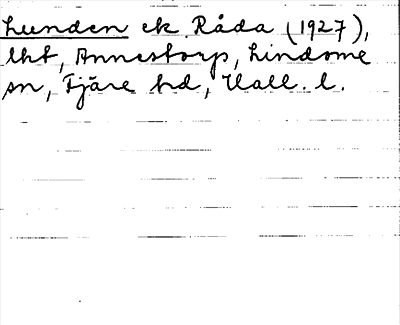 Lunden ek. Råda (1927),
lht, Annestorp, Lindome
sn, Fjäre hd, Hall. l.